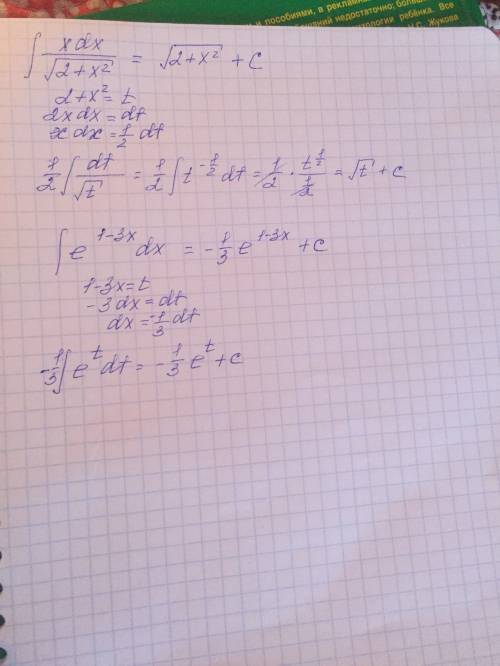 и пособиями, в реклам
ваний недостаточно; больш
тологии ребёнка. Все
Н.С. Жукова
∫ xdx/√(2+x²) = √(2+x²) + C
2+x² = t
2xdx = dt
xdx = 1/2 dt
1/2 ∫ dt/√t = 1/2 ∫ t^(-1/2) dt = 1/2 · t^(1/2)/(1/2) = √t + C
∫ e^(1-3x) dx = -1/3 e^(1-3x) + C
1-3x = t
-3dx = dt
dx = -1/3 dt
-1/3 ∫ e^t dt = -1/3 e^t + C